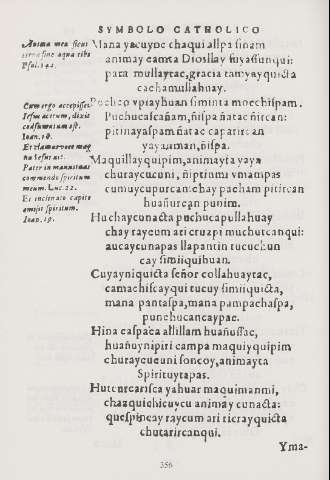 SYMBOLO CATHOLICO
Anima mea sicut
terra sine aqua tibi
Psal. 142.
Cum ergo accepisset
Iesus acetum, dixit
consummatum est.
Ioan. 19.
Et clamans voce mag
na Iesus ait.
Pater in manus tuas
commendo spiritum
meum. Luc. 22.
Et inclinato capite
emisit spiritum.
Ioan. 19.
Mana yacuyoc chaqui allpa sinam
animay camta Diosllay suyassunqui:
para mullaytac, gracia tamyayquicta
cachamullahuay.
Pucheo vpiayhuan siminta moechispam.
Puchucascañam, ñispa ñatac ñircan:
pitinayaspam ñatac caparircan
yayanman, ñispa.
Maquillayquipim, animayta yaya
churaycucuni, ñiptinmi vmampas
cumuycupurcan: chay pacham pitircan
huañurcan punim.
Huchaycunacta puchucapullahuay
chay raycum ari cruzpi muchutcanqui:
aucaycunapas llapantin tucuchun
cay simiiquihuan.
Cuyayniquicta señor collahuaytac,
camachiscayqui tucuy simiiquicta,
mana pantaspa, mana pampachaspa,
punchucancaypac.
Hina caspaca allillam huañussac,
huañuynipiri campa maquiyquipim
churaycucuni soncoy, animayta
Spirituytapas.
Hutcurcarisca yahuar maquimanmi,
chazquichicuycu animay cunacta:
quespincay raycum ari ricrayquicta
chutarircanqui.
Yma-
356